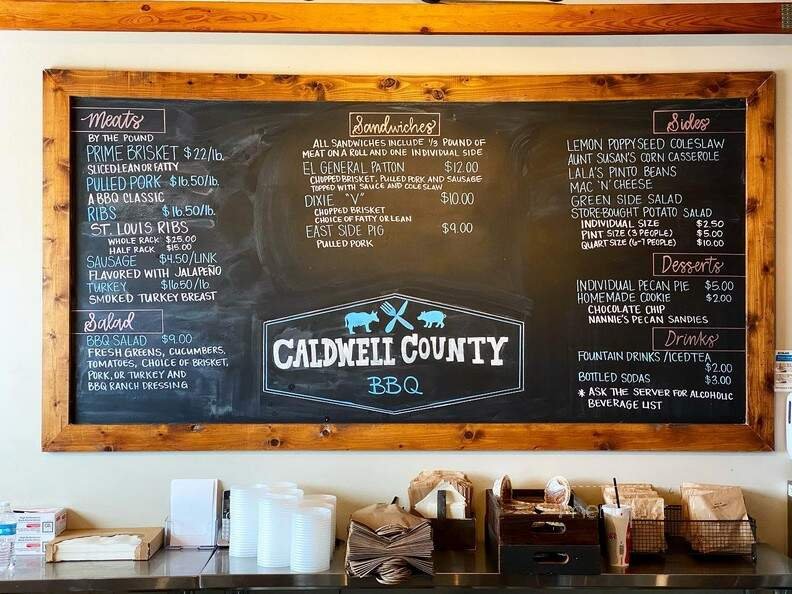 Meats
BY THE POUND
PRIME BRISKET $22/lb.
SLICED LEAN OR FATTY
PULLED PORK $16.50/lb.
A BBQ CLASSIC
RIBS $16.50/lb.
ST. LOUIS RIBS
WHOLE RACK $25.00
HALF RACK $15.00
SAUSAGE $4.50/LINK
FLAVORED WITH JALAPEÑO
TURKEY $16.50/lb.
SMOKED TURKEY BREAST
Salad
BBQ SALAD $9.00
FRESH GREENS, CUCUMBERS,
TOMATOES, CHOICE OF BRISKET,
PORK, OR TURKEY AND
BBQ RANCH DRESSING
Sandwiches
ALL SANDWICHES INCLUDE 1/3 POUND OF
MEAT ON A ROLL AND ONE INDIVIDUAL SIDE
EL GENERAL PATTON $12.00
CHOPPED BRISKET, PULLED PORK AND SAUSAGE
TOPPED WITH SAUCE AND COLE SLAW
DIXIE "V" $10.00
CHOPPED BRISKET
CHOICE OF FATTY OR LEAN
EAST SIDE PIG $9.00
PULLED PORK
CALDWELL COUNTY
BBQ
Sides
LEMON POPPYSEED COLESLAW
AUNT SUSAN'S CORN CASSEROLE
LALA'S PINTO BEANS
MAC 'N' CHEESE
GREEN SIDE SALAD
STORE-BOUGHT POTATO SALAD
INDIVIDUAL SIZE $2.50
PINT SIZE (3 PEOPLE) $5.00
QUART SIZE (6-7 PEOPLE) $10.00
Desserts
INDIVIDUAL PECAN PIE $5.00
HOMEMADE COOKIE $2.00
CHOCOLATE CHIP
NANNIE'S PECAN SANDIES
Drinks
FOUNTAIN DRINKS/ICED TEA
$2.00
BOTTLED SODAS $3.00
* ASK THE SERVER FOR ALCOHOLIC
BEVERAGE LIST